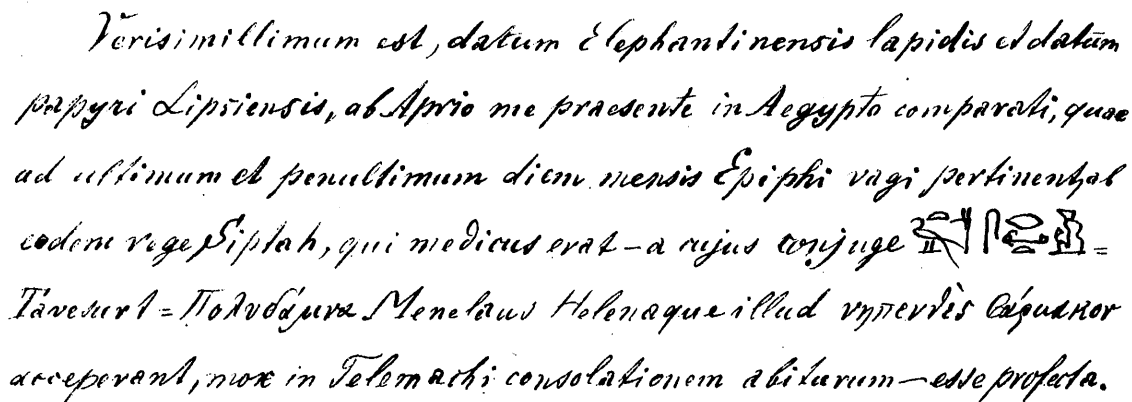 Verisimillimum est, datum Elephantinensis lapidis et datum
papyri Lipsiensis, ab Aprio me praesente in Aegypto comparati, quae
ad ultimum et penultimum diem mensis Epiphi vagi pertinent, ab
eodem rege Siptah, qui medicus erat – a cujus conjuge =
Tavesurt = Πολυδάμνα Menelaus Helenaque illud νηπενθὲς φάρμακον
acceperant, mox in Telemachi consolationem abiturum – esse profecta.